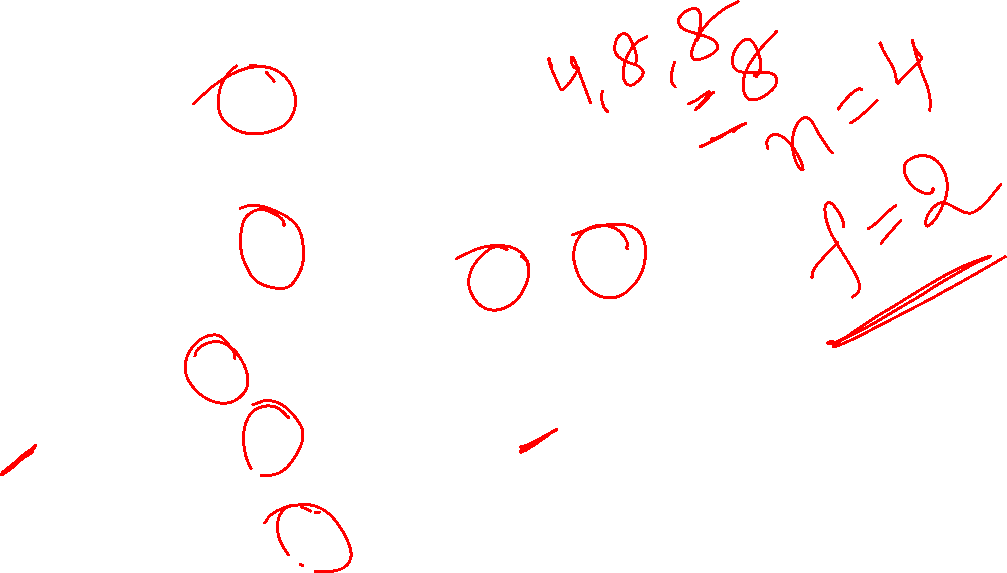 4, 8, 8
= 8
n = 4
f = 2